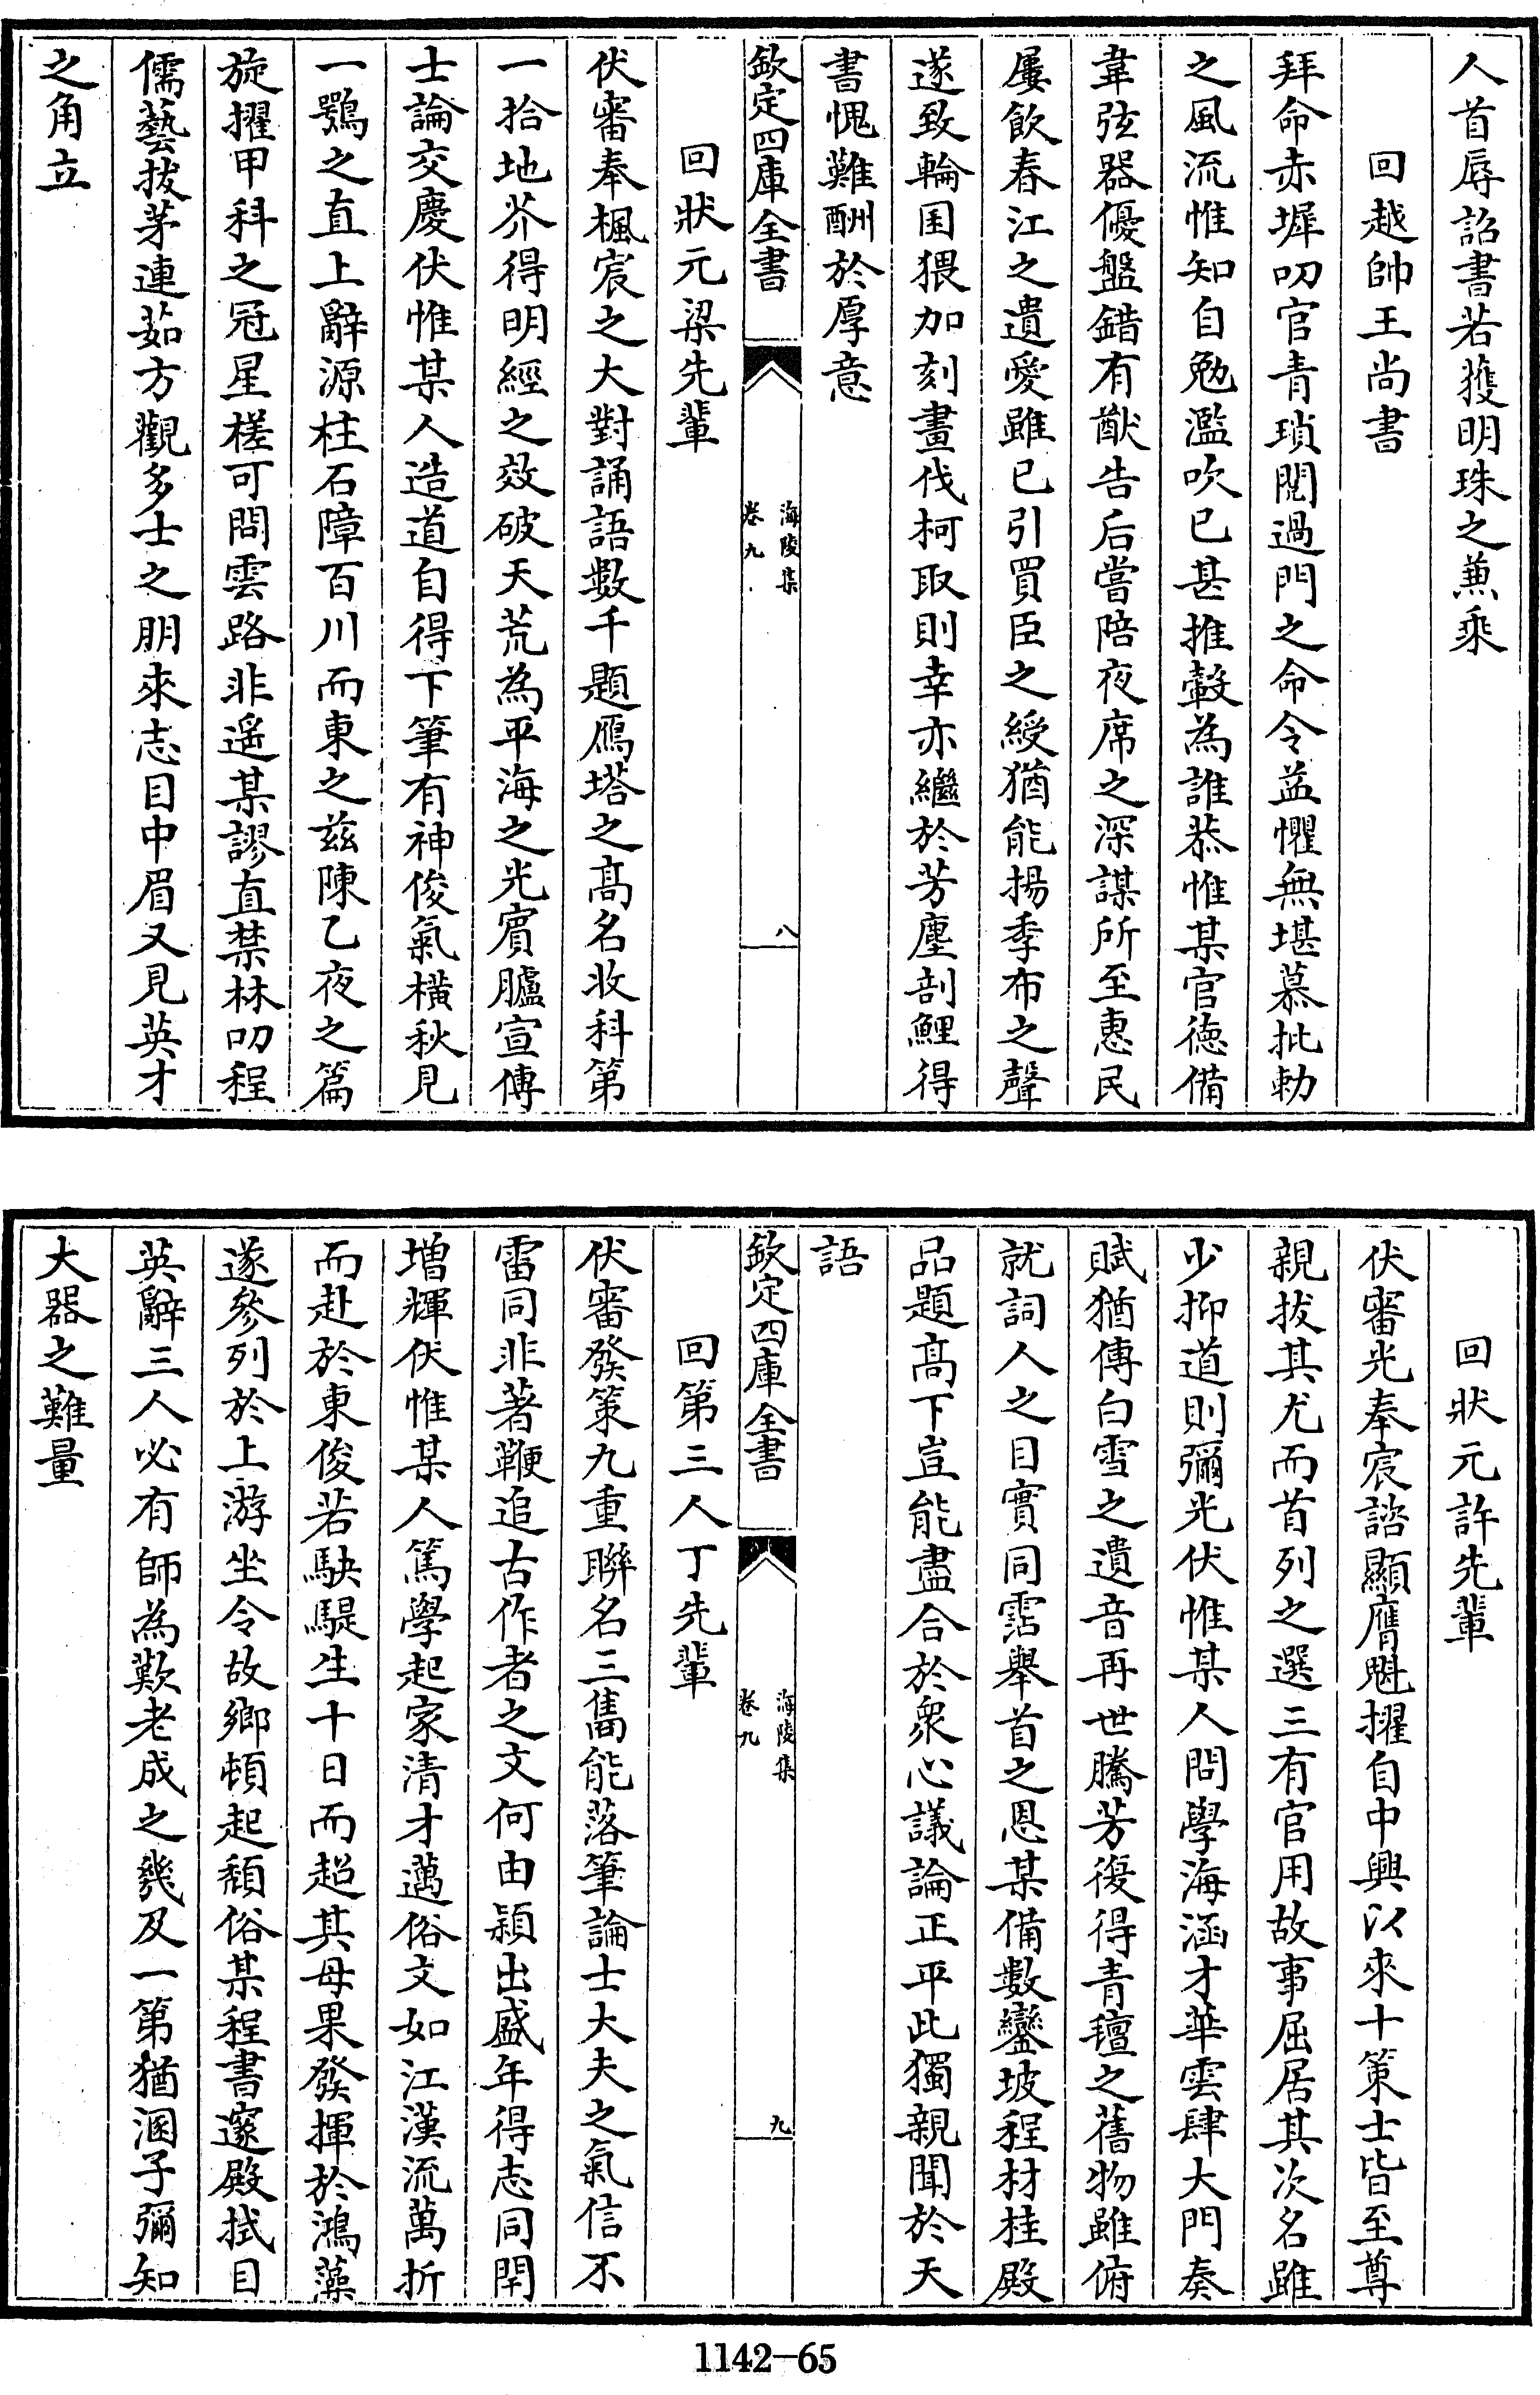 人首辱詔書若獲明珠之兼乘
回越帥王尚書
拜命赤墀叨官青瑣閲過門之命令益懼無堪慕批勅
之風流惟知自勉濫吹已甚推轂為誰恭惟某官德備
韋弦器優盤錯有猷告后嘗陪夜席之深謀所至惠民
屢飲春江之遺愛雖已引買臣之綬猶能揚季布之聲
遂致輪囷猥加刻畫伐柯取則幸亦繼於芳塵剖鯉得
書愧難酬於厚意
欽定四庫全書
海陵集
卷九
八
回狀元梁先輩
伏審奉楓宸之大對誦語數千題鴈塔之髙名收科第
一拾地芥得明經之效破天荒為平海之光賓臚宣傳
士論交慶伏惟某人造道自得下筆有神俊氣橫秋見
一鶚之直上辭源柱石障百川而東之兹陳乙夜之篇
旋擢甲科之冠星槎可問雲路非遥某謬直禁林叨程
儒藝拔茅連茹方觀多士之朋來志目中眉又見英才
之角立
回狀元許先輩
伏審光奉宸諮顯膺魁擢自中興以來十策士皆至尊
親拔其尤而首列之選三有官用故事屈居其次名雖
少抑道則彌光伏惟某人問學海涵才華雲肆大門奏
賦猶傳白雪之遺音再世騰芳復得青氊之舊物雖俯
就詞人之目實同霑舉首之恩某備數鑾坡程材桂殿
品題髙下豈能盡合於衆心議論正平此獨親聞於天
語
欽定四庫全書
海陵集
卷九
九
回第三人丁先輩
伏審發策九重聯名三雋能落筆論士大夫之氣信不
雷同非著鞭追古作者之文何由頴出盛年得志同閈
增輝伏惟某人篤學起家清才邁俗文如江漢流萬折
而赴於東俊若駃騠生十日而超其母果發揮於鴻藻
遂參列於上游坐令故鄉頓起頽俗某程書邃殿拭目
英辭三人必有師為歎老成之幾及一第猶溷子彌知
大器之難量
1142-65